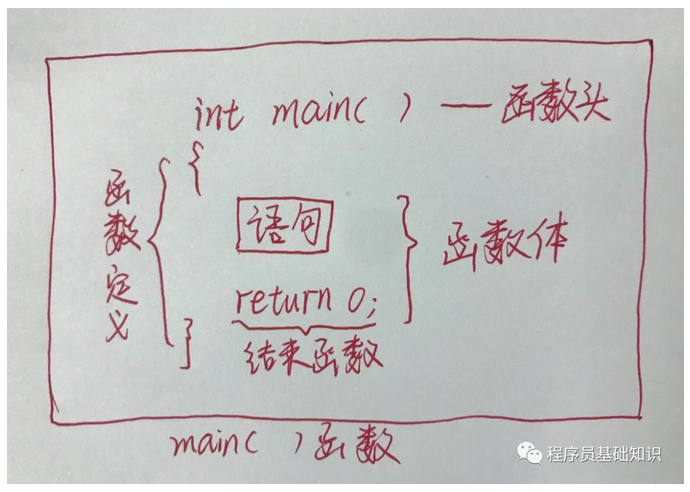 int main( ) — 函数头
{
函数定义
语句
函数体
return 0;
}
结束函数
main( )函数
程序员基础知识